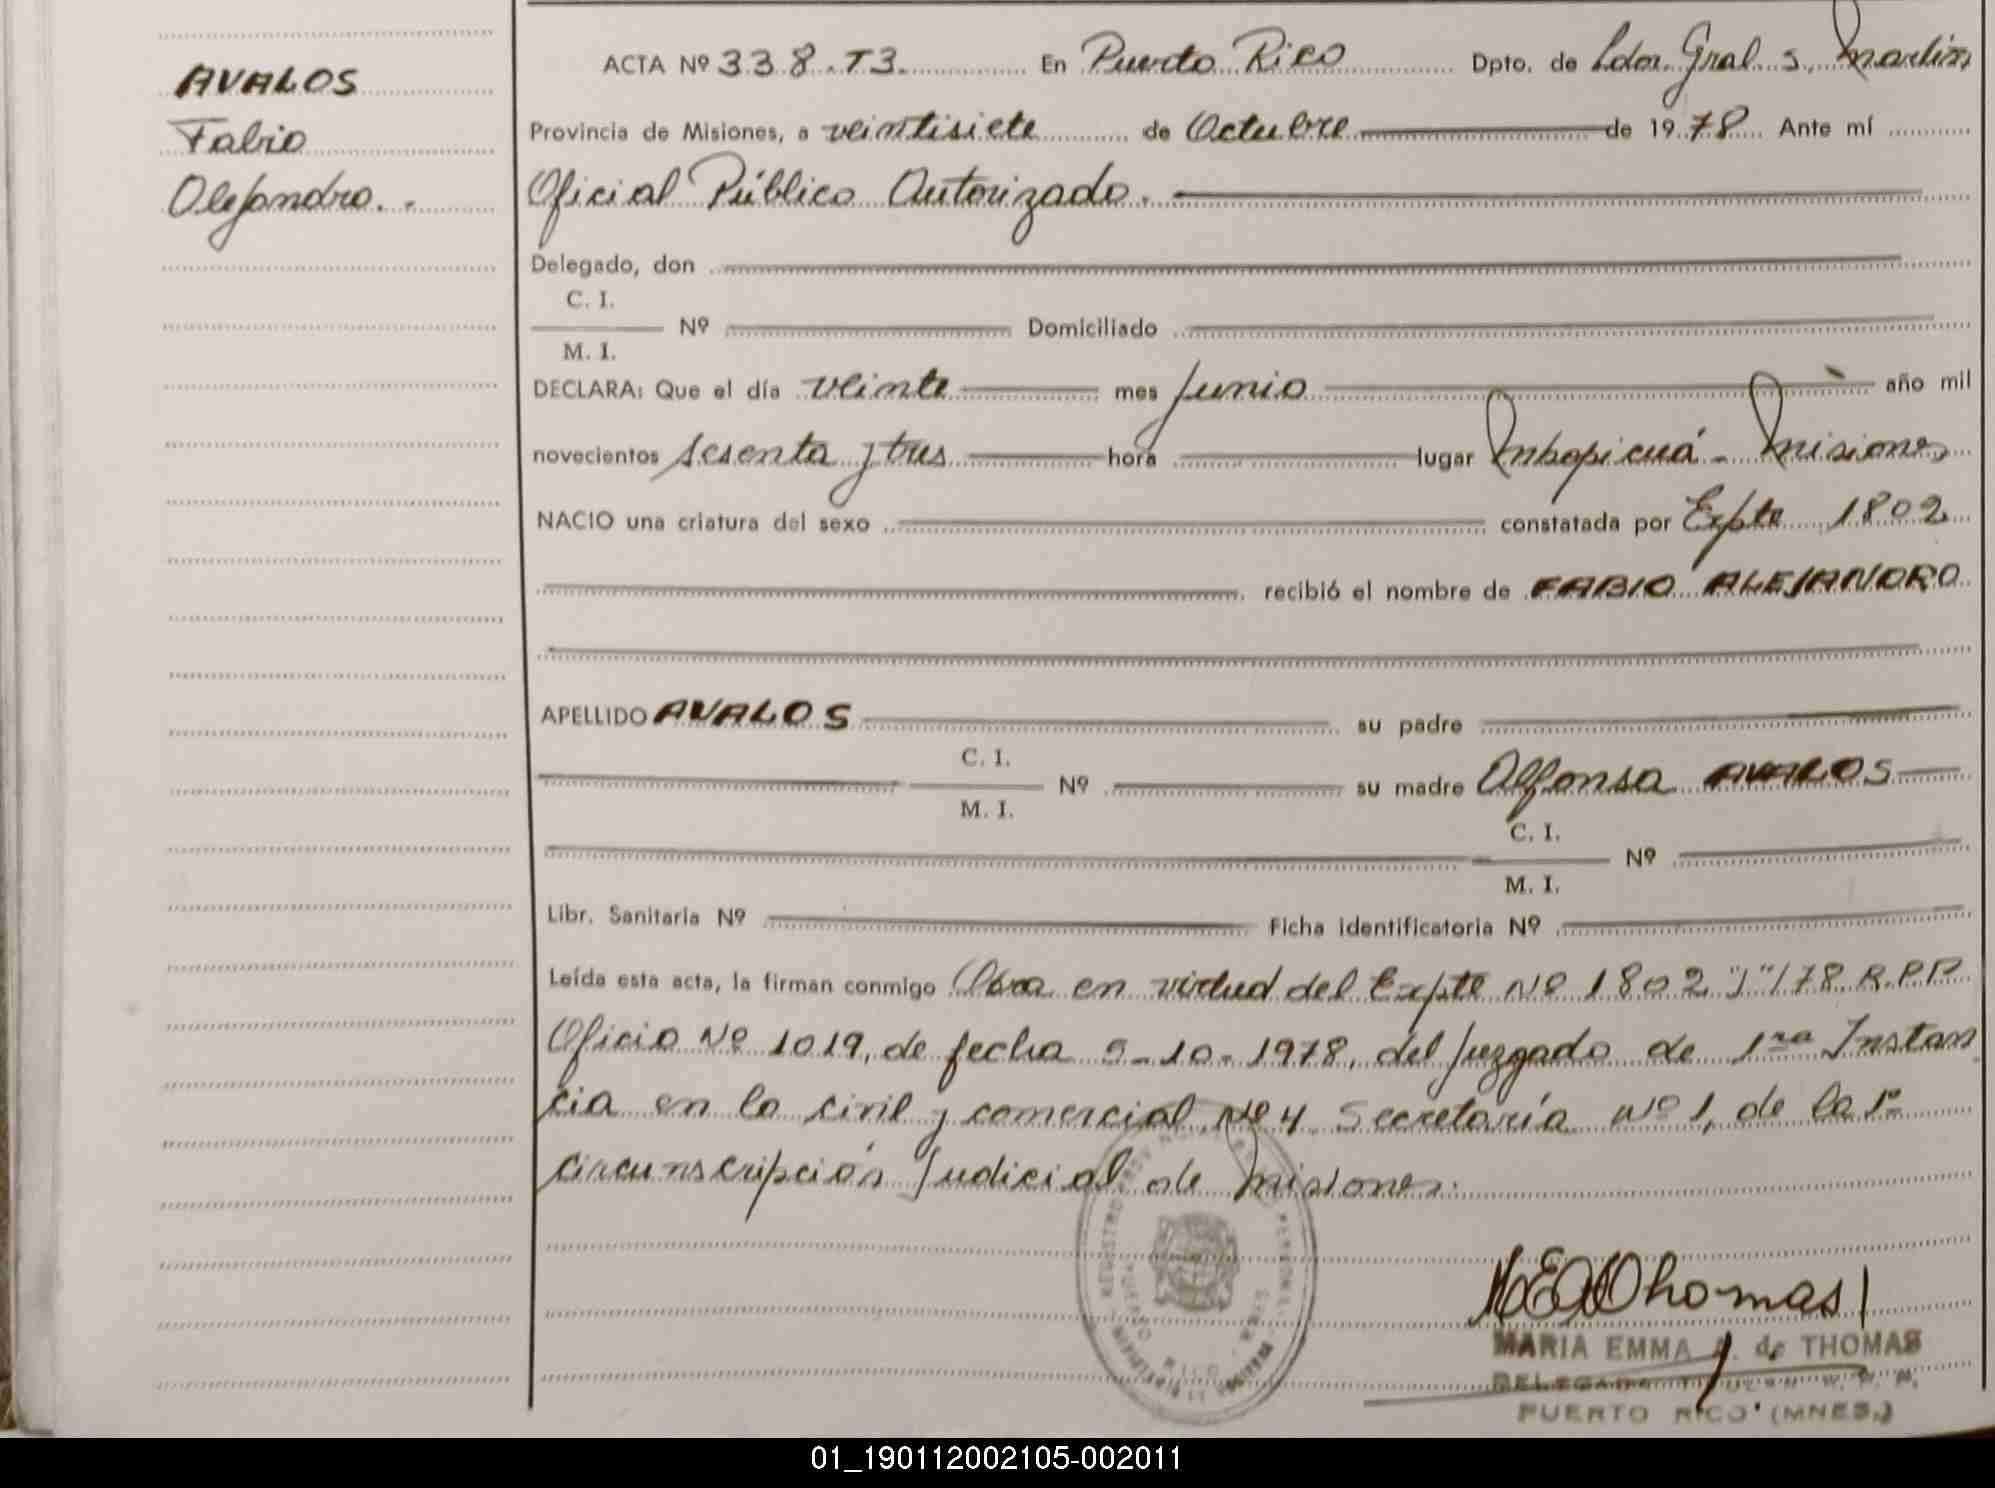 AVALOS
Fabio
Alejandro..
ACTA Nº 338.T3. En Puerto Rico Dpto. de Ldor. Gral S. Martin,
Provincia de Misiones, a veintisiete de Octubre de 1978 Ante mí
Oficial Público Autorizado.
Delegado, don
C. I.
Nº Domiciliado
M. I.
DECLARA: Que el día veinte mes Junio año mil
novecientos sesenta y tres hora lugar Mbopicuá - Misiones
NACIO una criatura del sexo constatada por Expte 1802
recibió el nombre de FABIO ALEJANDRO
APELLIDO AVALOS su padre
C. I.
Nº su madre Alfonsa AVALOS
M. I.
C. I.
Nº
M. I.
Libr. Sanitaria Nº Ficha identificatoria Nº
Leída esta acta, la firman conmigo Obra en virtud del Expte Nº 1802 "J"/78 R.P.P.
Oficio Nº 1019, de fecha 5-10-1978, del Juzgado de 1ra Instan
cia en lo civil y comercial Nº 4 Secretaría nº 1, de la 1ª
circunscripción Judicial de Misiones.
Thomas
MARIA EMMA de THOMAS
DELEGADA TITULAR
PUERTO RICO (MNES.)
01_190112002105-002011